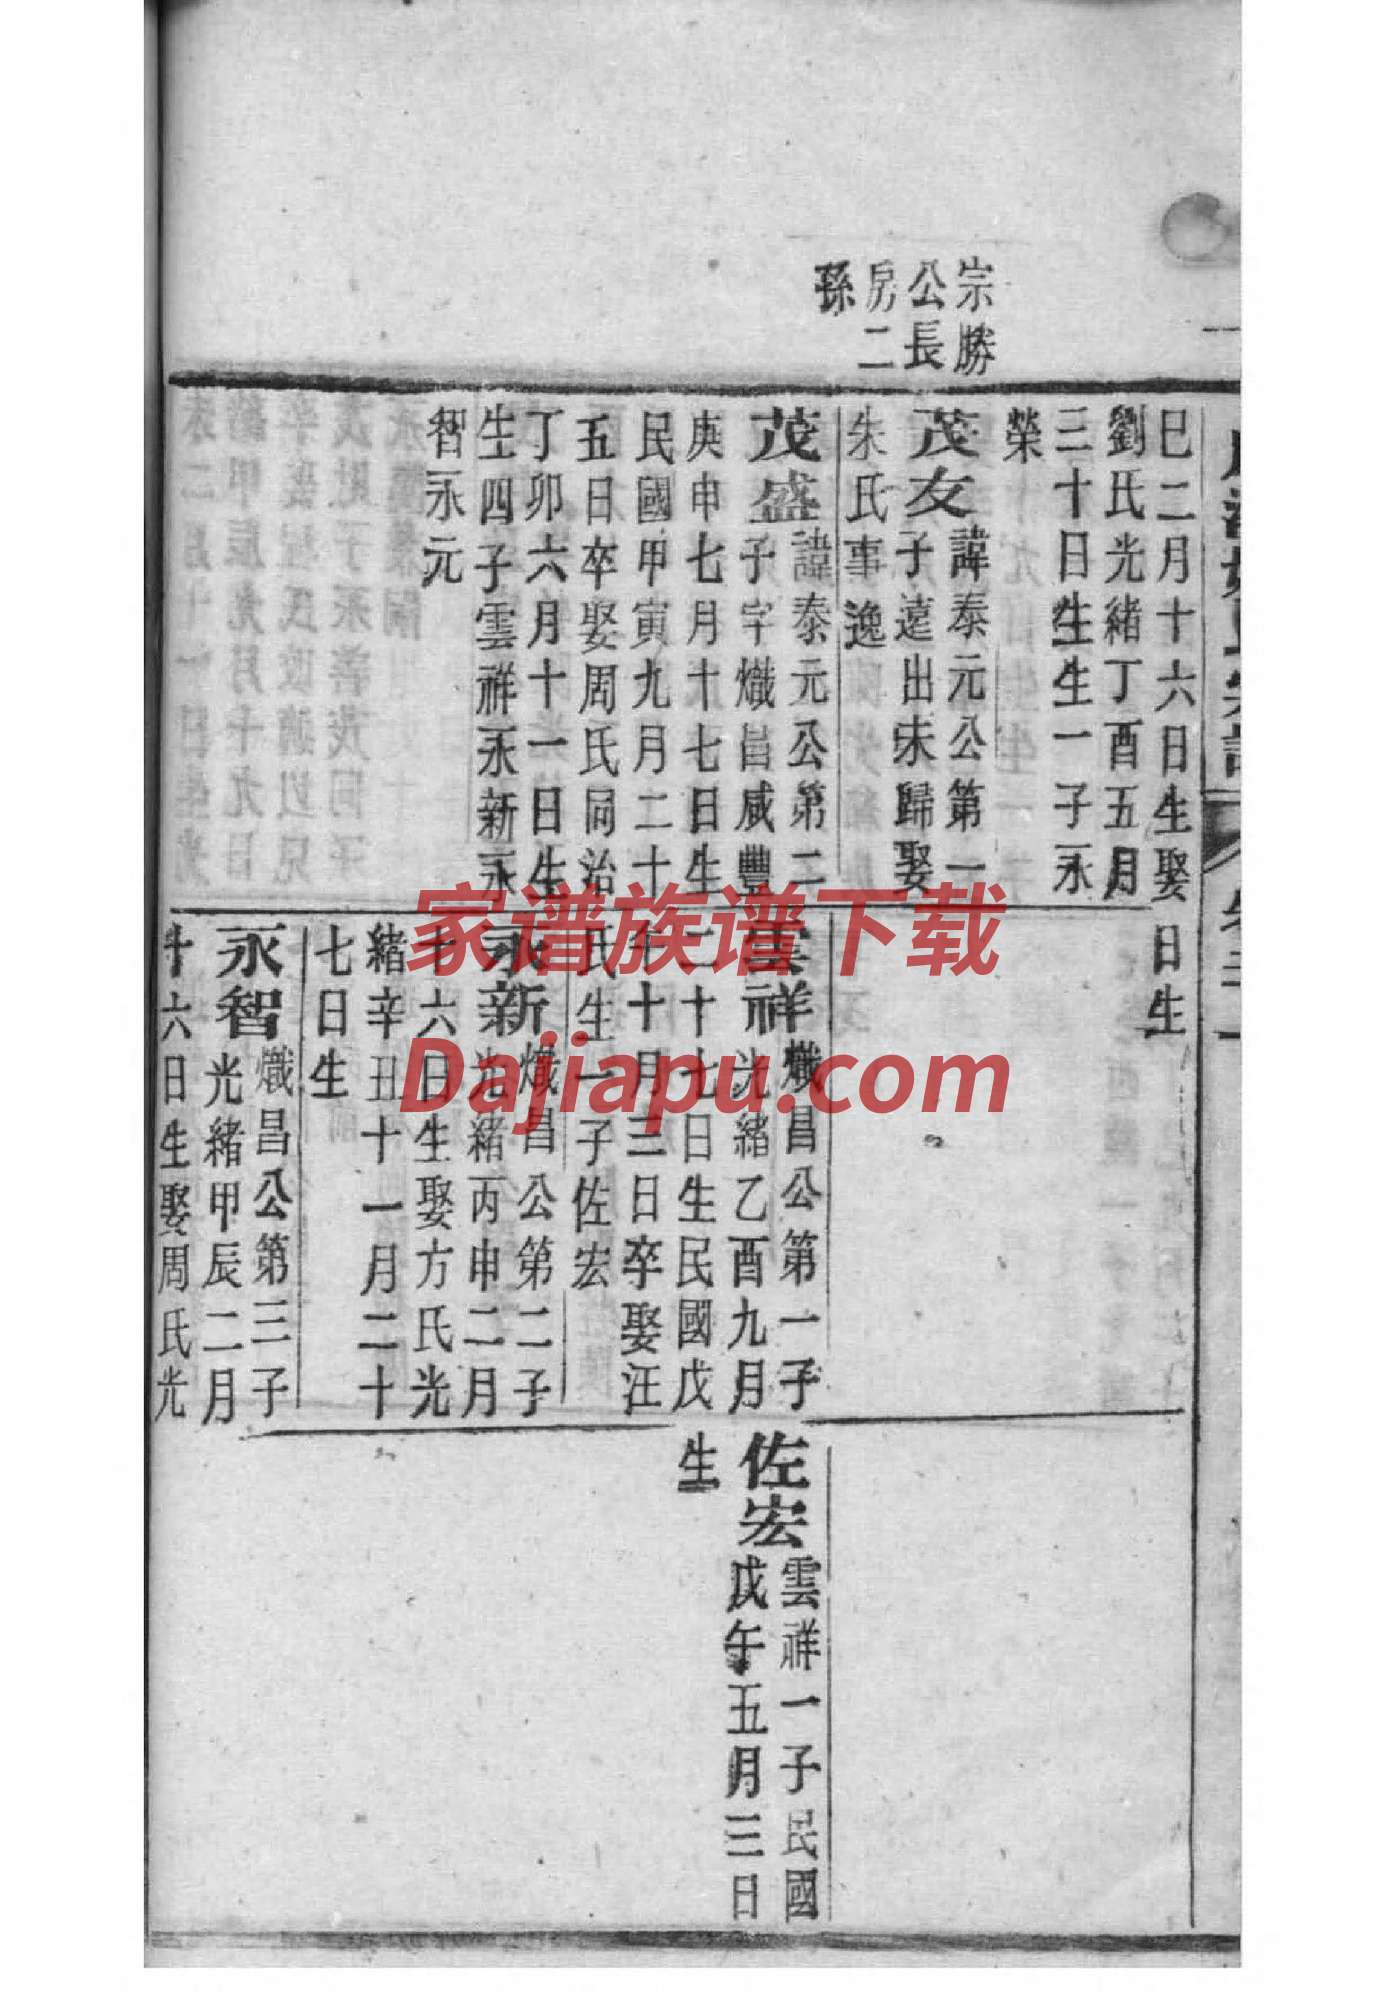 宗勝
公長
房二
孫
巳二月十六日生娶
劉氏光緒丁酉五月
三十日生生一子永
榮
茂友
諱泰元公第一
子遠出未歸娶
朱氏事逸
茂盛
諱泰元公第二
子字熾昌咸豐
庚申七月十七日生
民國甲寅九月二十
五日卒娶周氏同治
丁卯六月十一日生
生四子雲祥永新永
智永元
日生
雲祥
熾昌公第一子
光緒乙酉九月
二十七日生民國戊
午十月三日卒娶汪
氏生一子佐宏
永新
熾昌公第二子
光緒丙申二月
十六日生娶方氏光
緒辛丑十一月二十
七日生
永智
熾昌公第三子
光緒甲辰二月
十六日生娶周氏光
佐宏
雲祥一子民國
戊午五月三日
生
家谱族谱下载
Dajiapu.com